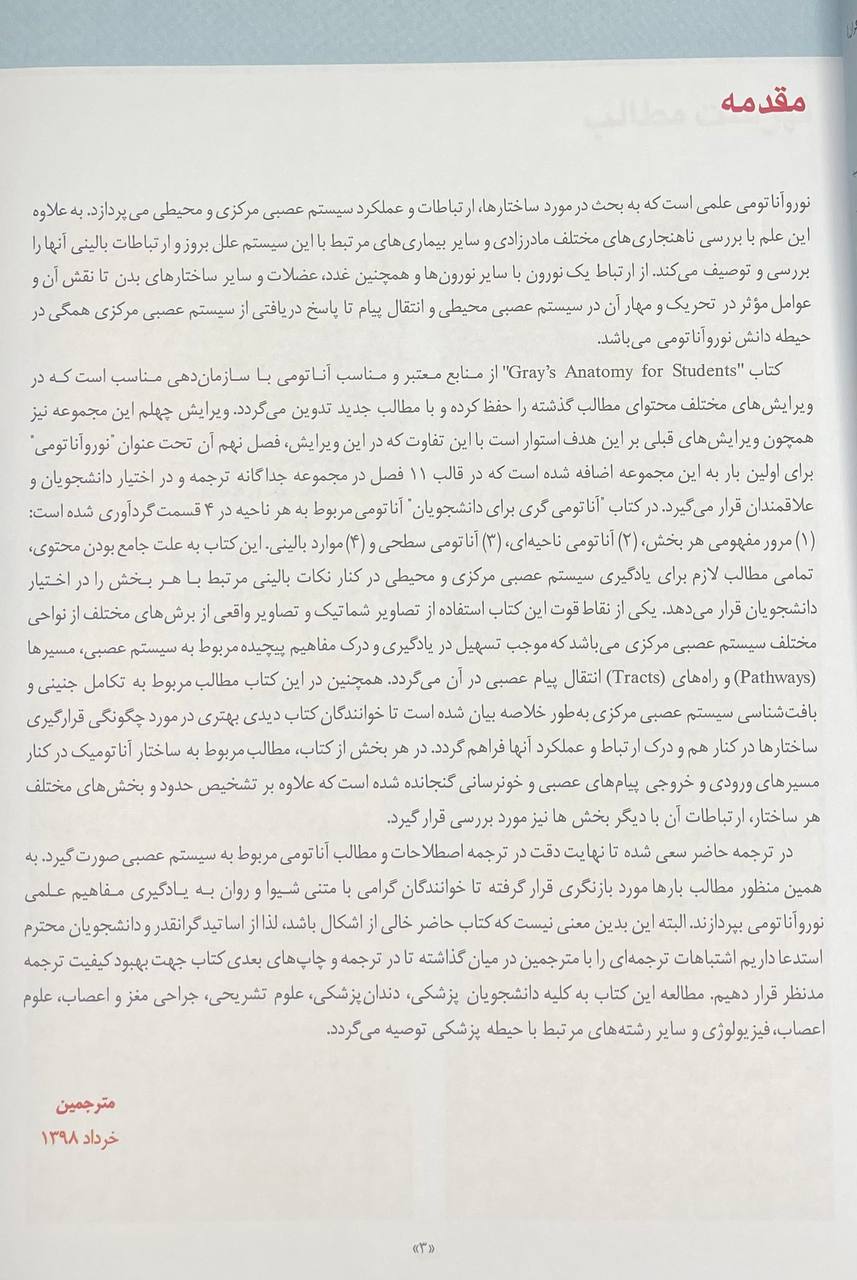 مقدمه
نوروآناتومی علمی است که به بحث در مورد ساختارها، ارتباطات و عملکرد سیستم عصبی مرکزی و محیطی می‌پردازد. به علاوه
این علم با بررسی ناهنجاری‌های مختلف مادرزادی و سایر بیماری‌های مرتبط با این سیستم علل بروز و ارتباطات بالینی آنها را
بررسی و توصیف می‌کند. از ارتباط یک نورون با سایر نورون‌ها و همچنین غدد، عضلات و سایر ساختارهای بدن تا نقش آن و
عوامل مؤثر در تحریک و مهار آن در سیستم عصبی محیطی و انتقال پیام تا پاسخ دریافتی از سیستم عصبی مرکزی همگی در
حیطه دانش نوروآناتومی می‌باشد.
کتاب "Gray's Anatomy for Students" از منابع معتبر و مناسب آناتومی با سازمان‌دهی مناسب است که در
ویرایش‌های مختلف محتوای مطالب گذشته را حفظ کرده و با مطالب جدید تدوین می‌گردد. ویرایش چهلم این مجموعه نیز
همچون ویرایش‌های قبلی بر این هدف استوار است با این تفاوت که در این ویرایش، فصل نهم آن تحت عنوان "نوروآناتومی"
برای اولین بار به این مجموعه اضافه شده است که در قالب ۱۱ فصل در مجموعه جداگانه ترجمه و در اختیار دانشجویان و
علاقمندان قرار می‌گیرد. در کتاب "آناتومی گری برای دانشجویان" آناتومی مربوط به هر ناحیه در ۴ قسمت گردآوری شده است:
(۱) مرور مفهومی هر بخش، (۲) آناتومی ناحیه‌ای، (۳) آناتومی سطحی و (۴) موارد بالینی. این کتاب به علت جامع بودن محتوی،
تمامی مطالب لازم برای یادگیری سیستم عصبی مرکزی و محیطی در کنار نکات بالینی مرتبط با هر بخش را در اختیار
دانشجویان قرار می‌دهد. یکی از نقاط قوت این کتاب استفاده از تصاویر شماتیک و تصاویر واقعی از برش‌های مختلف از نواحی
مختلف سیستم عصبی مرکزی می‌باشد که موجب تسهیل در یادگیری و درک مفاهیم پیچیده مربوط به سیستم عصبی، مسیرها
(Pathways) و راه‌های (Tracts) انتقال پیام عصبی در آن می‌گردد. همچنین در این کتاب مطالب مربوط به تکامل جنینی و
بافت‌شناسی سیستم عصبی مرکزی به‌طور خلاصه بیان شده است تا خوانندگان کتاب دیدی بهتری در مورد چگونگی قرارگیری
ساختارها در کنار هم و درک ارتباط و عملکرد آنها فراهم گردد. در هر بخش از کتاب، مطالب مربوط به ساختار آناتومیک در کنار
مسیرهای ورودی و خروجی پیام‌های عصبی و خونرسانی گنجانده شده است که علاوه بر تشخیص حدود و بخش‌های مختلف
هر ساختار، ارتباطات آن با دیگر بخش ها نیز مورد بررسی قرار گیرد.
در ترجمه حاضر سعی شده تا نهایت دقت در ترجمه اصطلاحات و مطالب آناتومی مربوط به سیستم عصبی صورت گیرد. به
همین منظور مطالب بارها مورد بازنگری قرار گرفته تا خوانندگان گرامی با متنی شیوا و روان به یادگیری مفاهیم علمی
نوروآناتومی بپردازند. البته این بدین معنی نیست که کتاب حاضر خالی از اشکال باشد، لذا از اساتید گرانقدر و دانشجویان محترم
استدعا داریم اشتباهات ترجمه‌ای را با مترجمین در میان گذاشته تا در ترجمه و چاپ‌های بعدی کتاب جهت بهبود کیفیت ترجمه
مدنظر قرار دهیم. مطالعه این کتاب به کلیه دانشجویان پزشکی، دندان‌پزشکی، علوم تشریحی، جراحی مغز و اعصاب، علوم
اعصاب، فیزیولوژی و سایر رشته‌های مرتبط با حیطه پزشکی توصیه می‌گردد.
مترجمین
خرداد ۱۳۹۸
«۳»